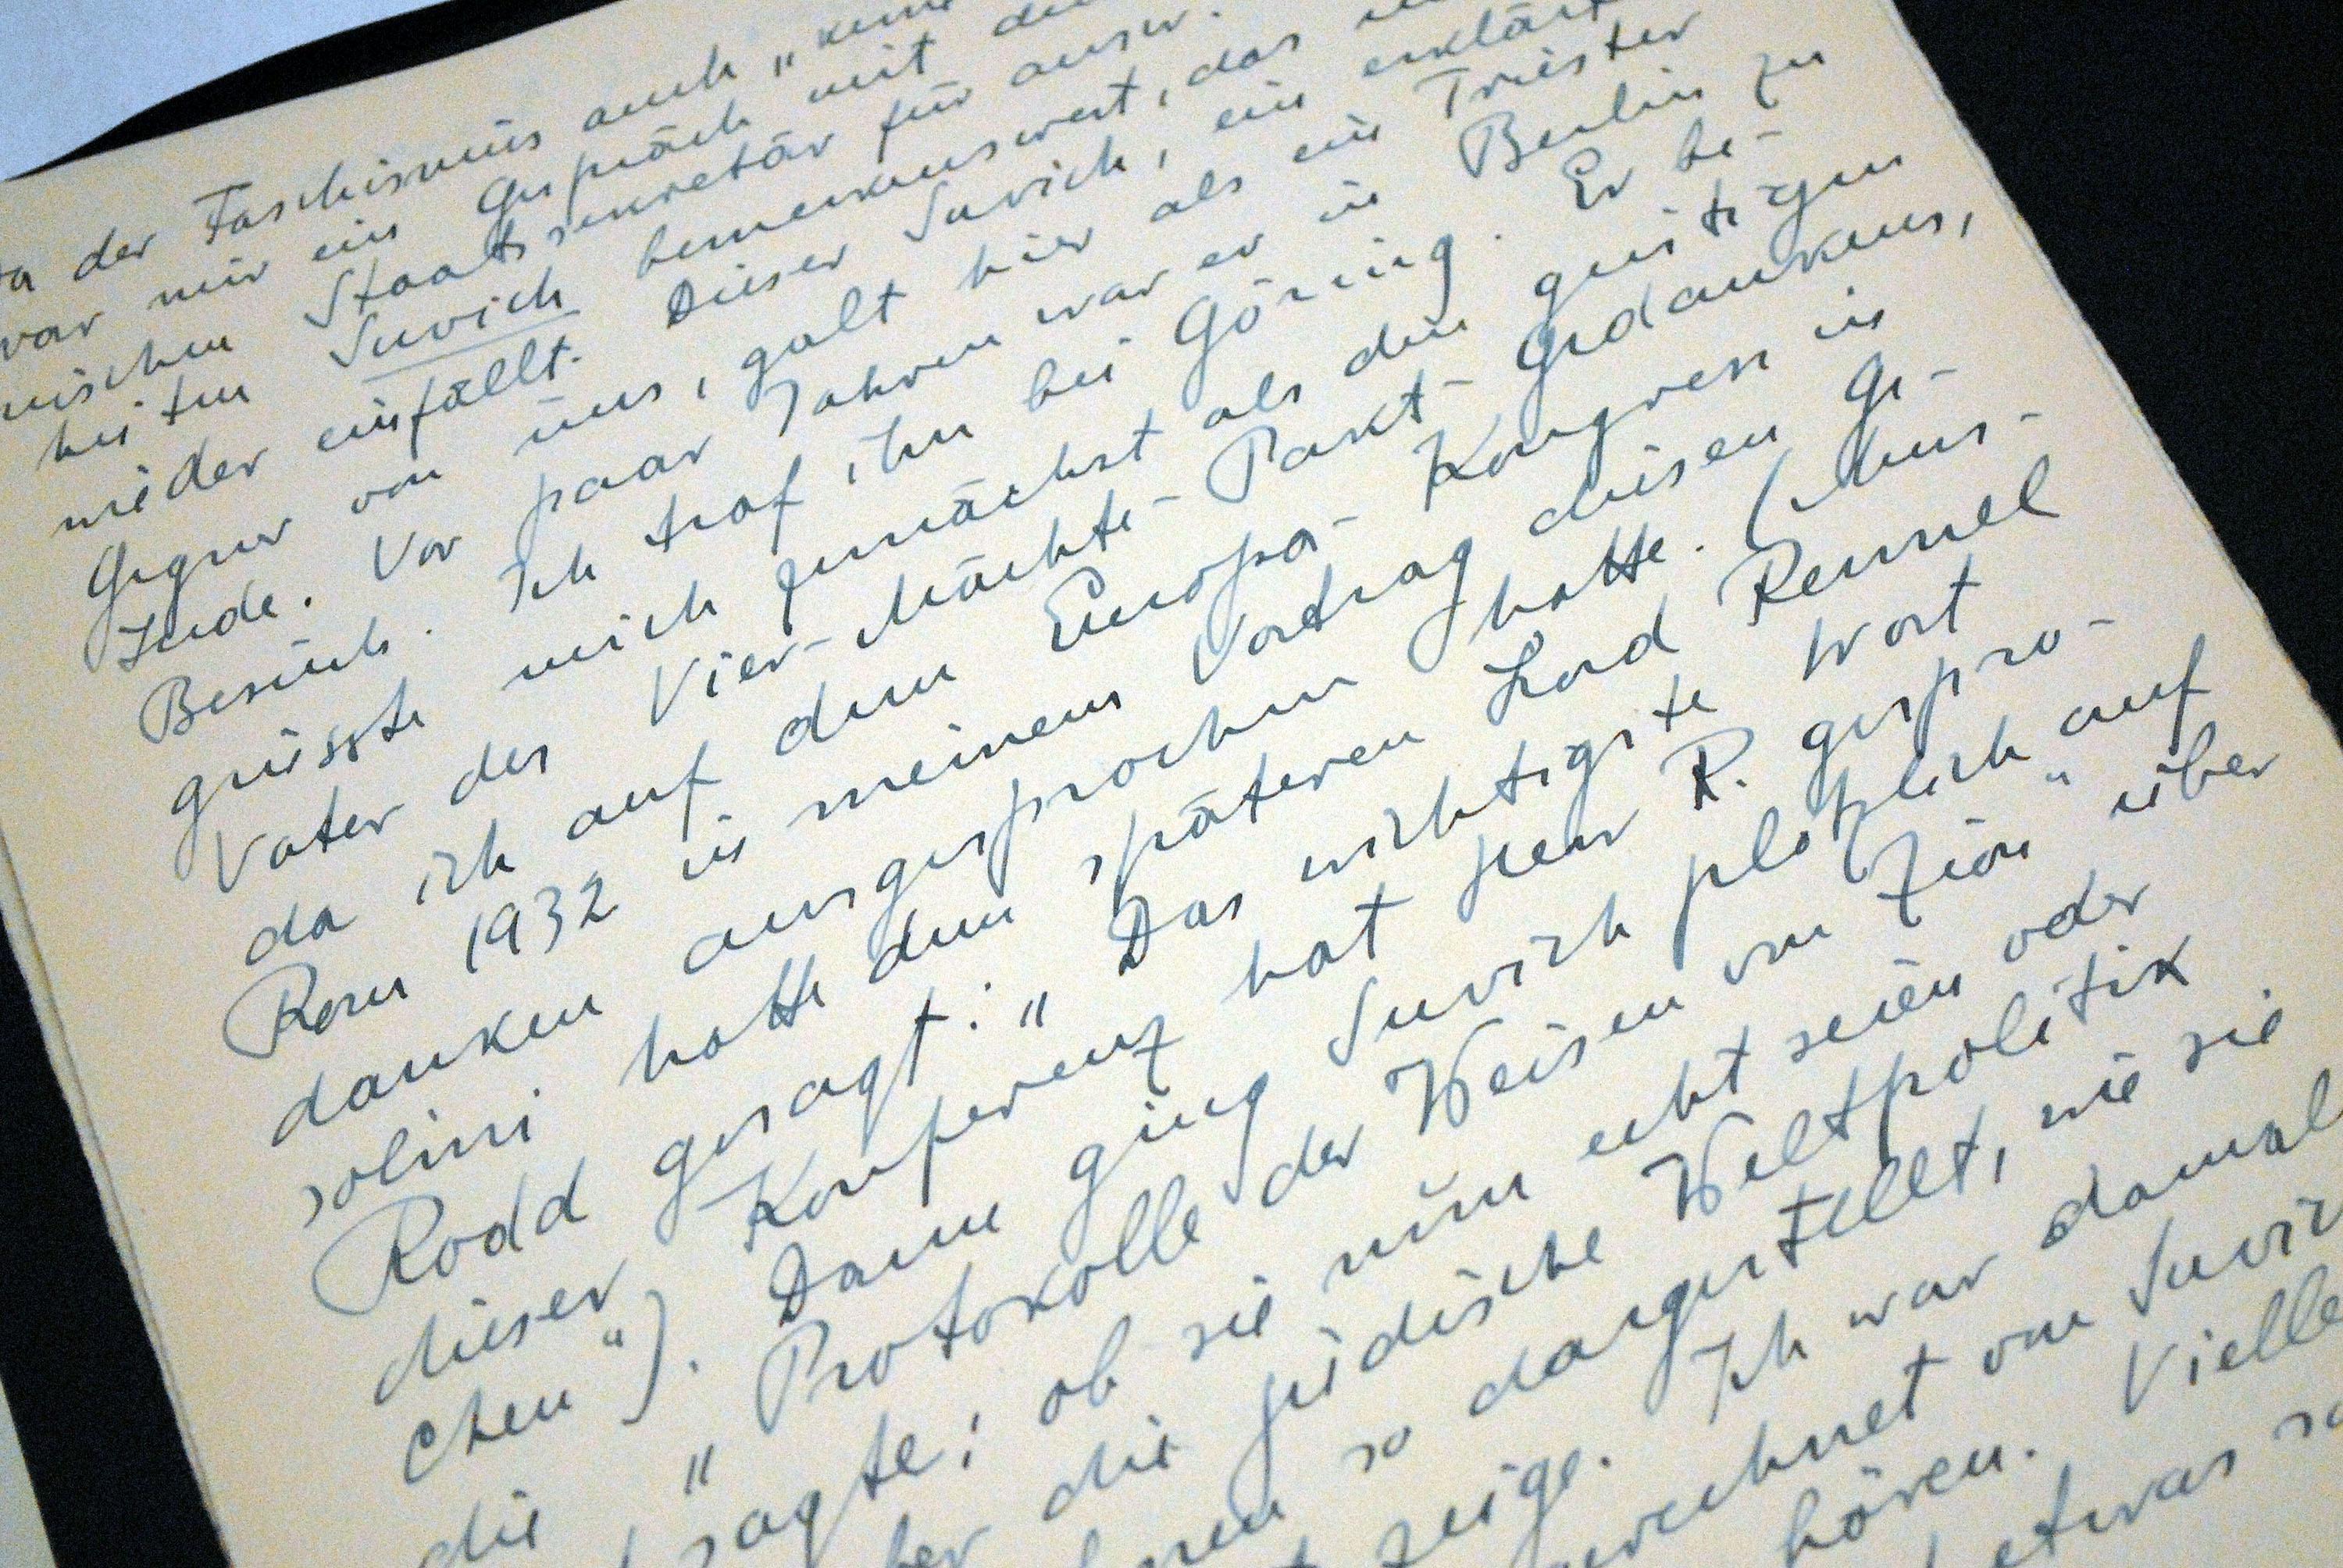 da der Faschismus auch „keine
war mir ein Gespräch mit dem
nischen Staatssekretär für ausw.
heiten Suvich bemerkenswert, das
wieder einfällt. Dieser Suvich, ein erklärt
Gegner von uns, galt hier als ein Triester
Jude. Vor paar Jahren war er in Berlin zu
Besuch. Ich traf ihn bei Göring. Er be-
grüsste mich zunächst als den geistigen
Vater des Vier-Mächte-Pakt-Gedankens,
da ich auf dem Europa-Kongress in
Rom 1932 in meinem Vortrag diesen Ge-
danken ausgesprochen hatte. (Mus-
solini hatte dem späteren Lord Rennel
Rodd gesagt: „Das wichtigste Wort
dieser Konferenz hat Herr R. gespro-
chen“). Dann ging Suvich plötzlich auf
die „Protokolle der Weisen von Zion“ über
sagte: ob sie nun echt seien oder
die jüdische Weltpolitik
so dargestellt, wie sie
zeige. Ich war damals
von Suvich
hören. Vielle
etwas